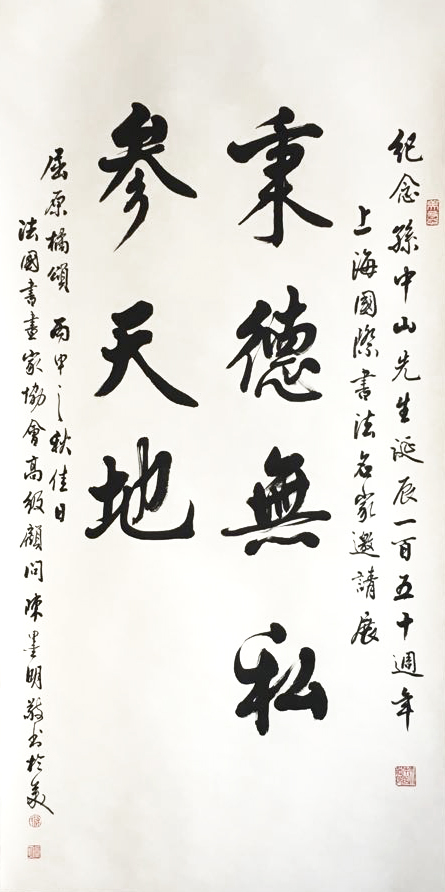 紀念孫中山先生誕辰一百五十週年
上海國際書法名家邀請展
秉德無私
參天地
屈原橘頌 丙申之秋佳日
法國書畫家協會高級顧問陳墨明敬书於美